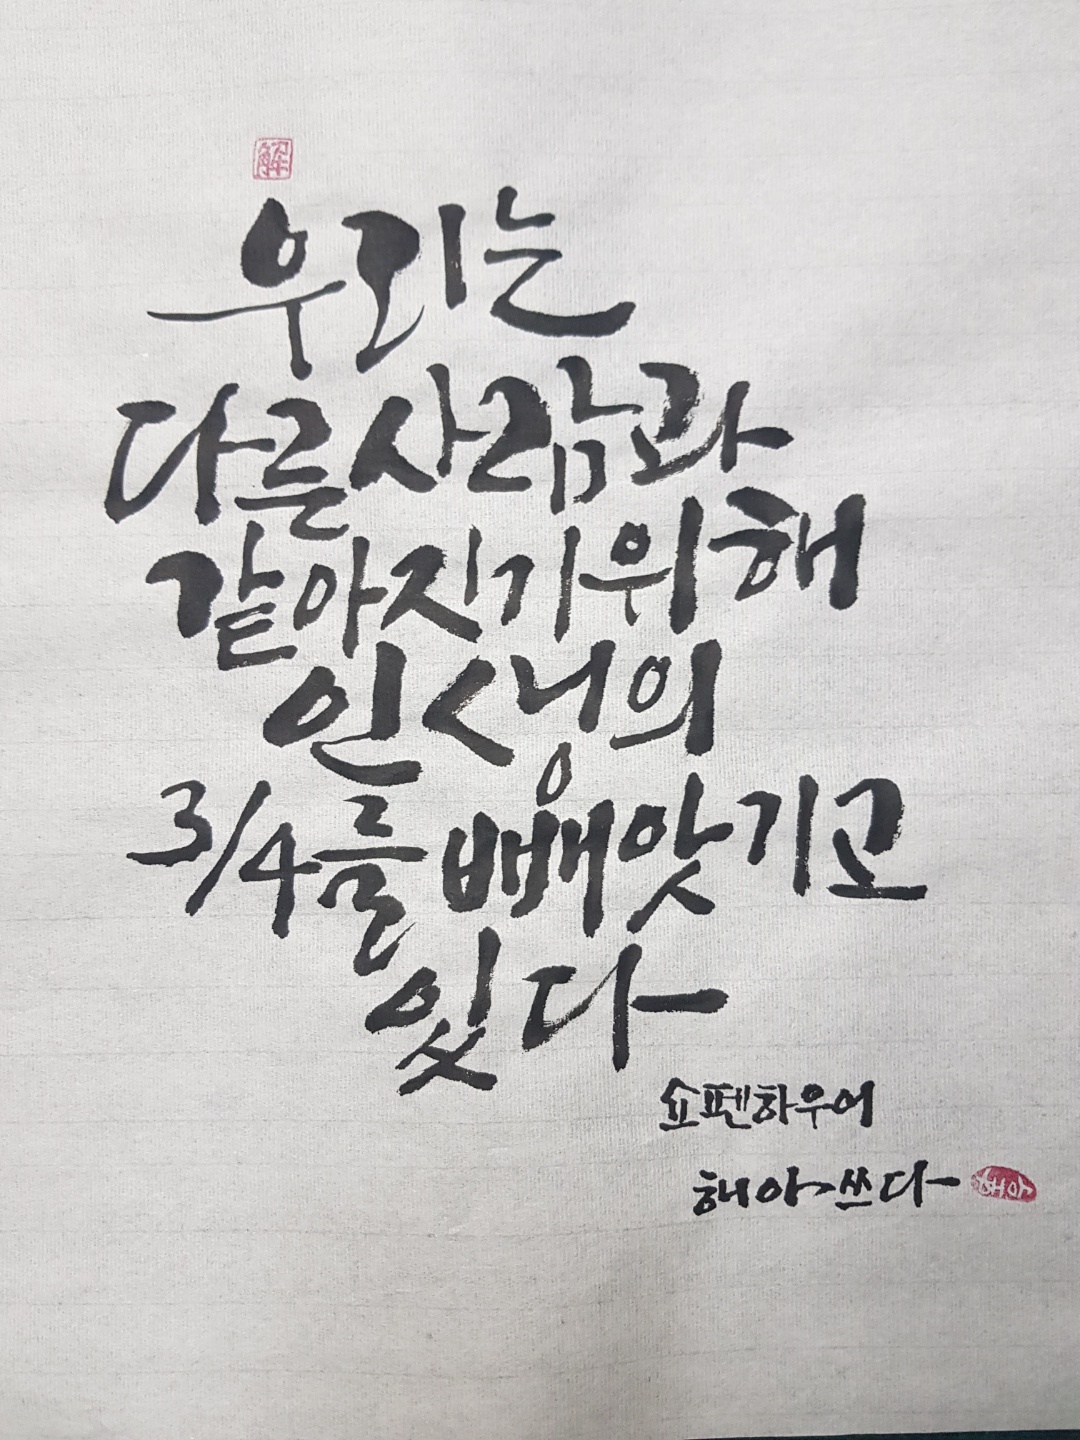 解
우리는
다른사람과
같아지기위해
인생의
3/4를 빼앗기고
있다
쇼펜하우어
해아쓰다 해아